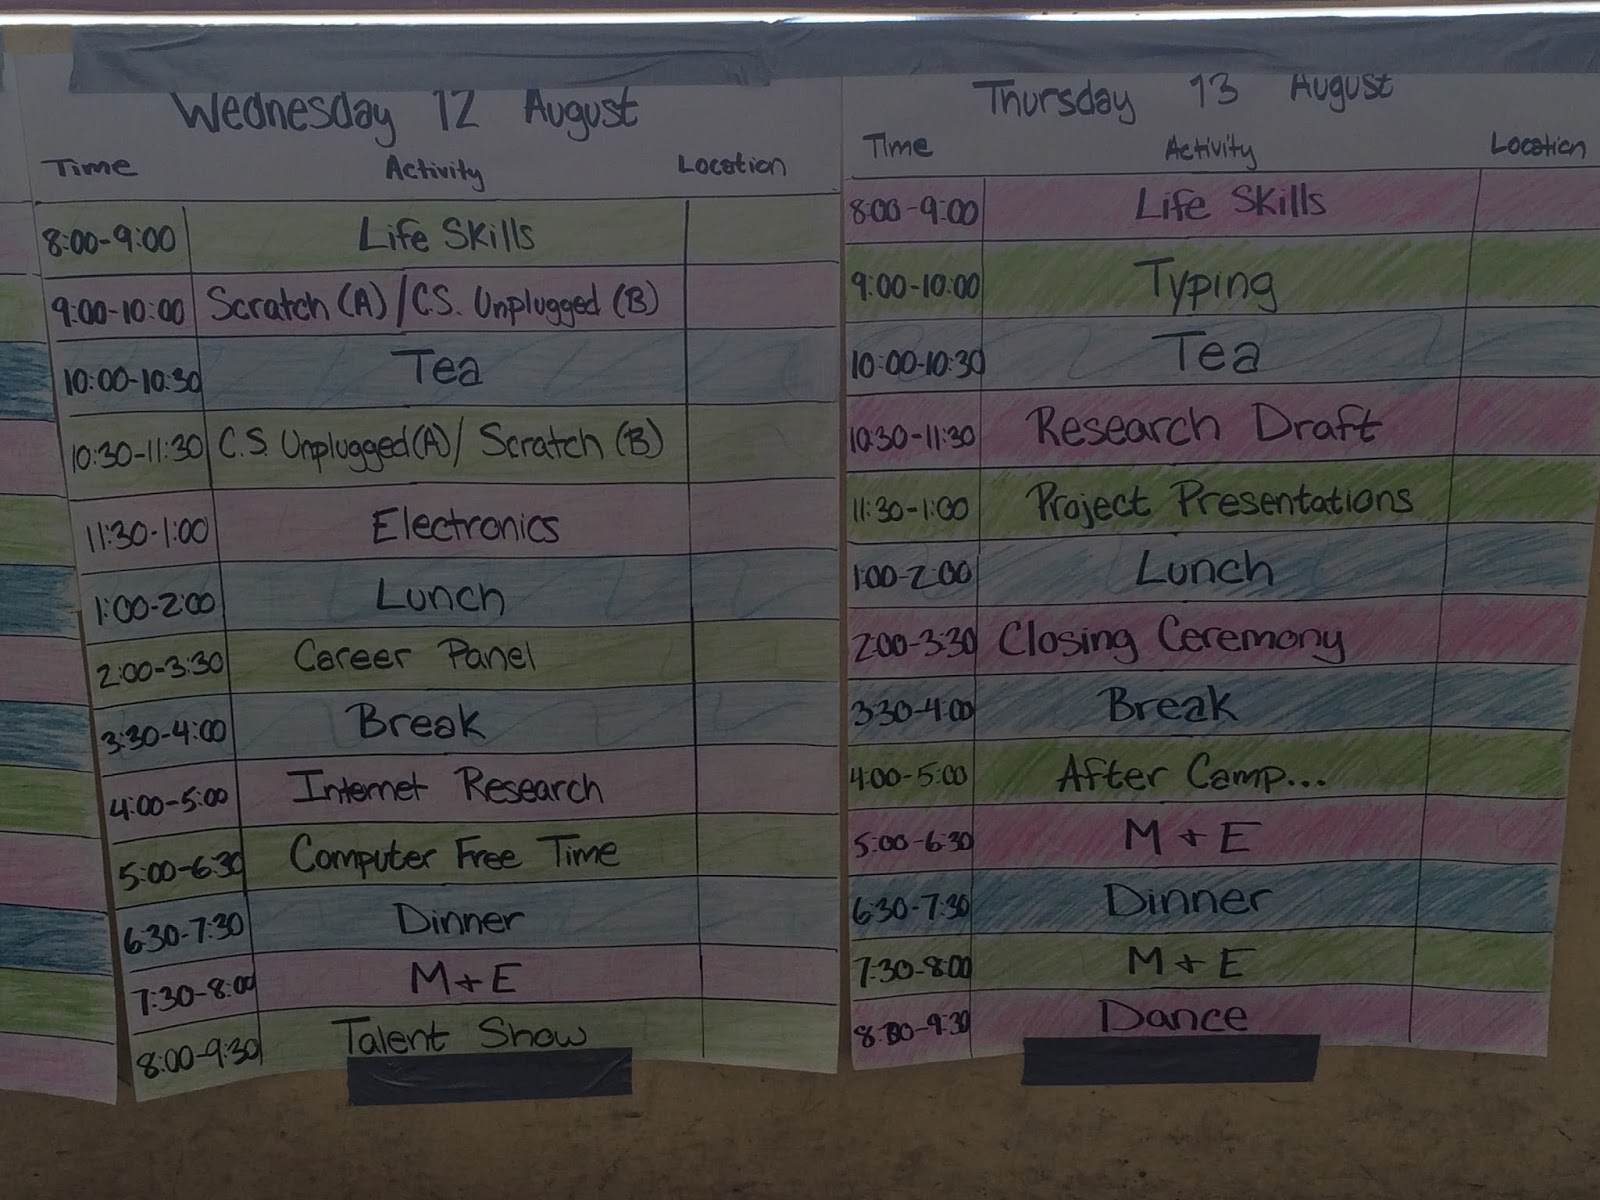 Wednesday 12 August
Time Activity Location
8:00-9:00 Life Skills
9:00-10:00 Scratch (A) / C.S. Unplugged (B)
10:00-10:30 Tea
10:30-11:30 C.S. Unplugged (A) / Scratch (B)
11:30-1:00 Electronics
1:00-2:00 Lunch
2:00-3:30 Career Panel
3:30-4:00 Break
4:00-5:00 Internet Research
5:00-6:30 Computer Free Time
6:30-7:30 Dinner
7:30-8:00 M + E
8:00-9:30 Talent Show
Thursday 13 August
Time Activity Location
8:00-9:00 Life Skills
9:00-10:00 Typing
10:00-10:30 Tea
10:30-11:30 Research Draft
11:30-1:00 Project Presentations
1:00-2:00 Lunch
2:00-3:30 Closing Ceremony
3:30-4:00 Break
4:00-5:00 After Camp...
5:00-6:30 M + E
6:30-7:30 Dinner
7:30-8:00 M + E
8:00-9:30 Dance